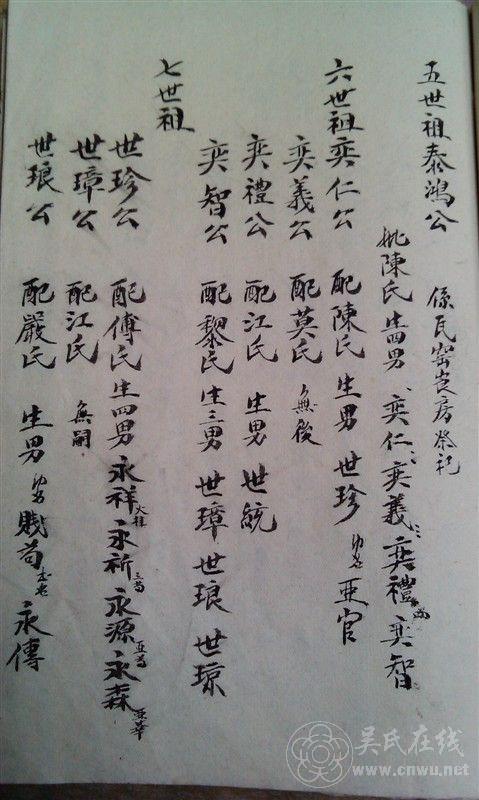 五世祖泰鴻公
係瓦窰房祭祀
妣陳氏 生四男 奕仁 奕義 奕禮 奕智
六世祖奕仁公 配陳氏 生男 世珍 幼名 亜官
奕義公 配莫氏 無後
奕禮公 配江氏 生男 世統
奕智公 配黎氏 生三男 世璋 世琅 世琼
七世祖
世珍公 配傅氏 生四男 永祥 永祈 永源 永森
世璋公 配江氏 無嗣
世琅公 配嚴氏 生男 幼名 賎苟 永傳
吴氏在线
www.cnwu.net